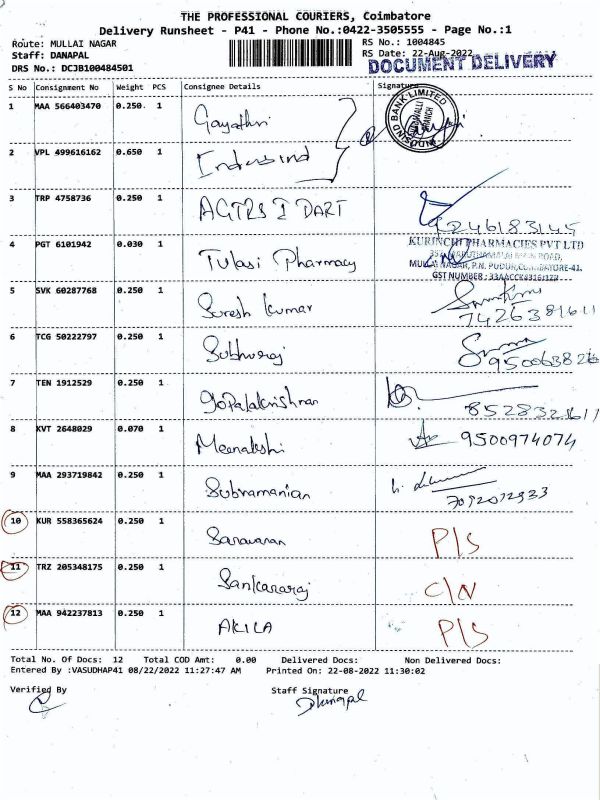 THE PROFESSIONAL COURIERS, Coimbatore
Delivery Runsheet - P41 - Phone No.:0422-3505555 - Page No.:1
Route: MULLAI NAGAR RS No.: 1004845
Staff: DANAPAL RS Date: 22-Aug-2022
DRS No.: DCJB100484501 DOCUMENT DELIVERY
S No Consignment No Weight PCS Consignee Details Signature
1 MAA 566403470 0.250 1 Gayathri
2 VPL 499616162 0.650 1 Indusind
BANK LIMITED
BRANCH
3 TRP 4758736 0.250 1 AGTRS I DART
9246183145
4 PGT 6101942 0.030 1 Tulasi Pharmacy
KURINCHI PHARMACIES PVT LTD
MULLAI NAGAR, P.N. PUDUR, COIMBATORE-41.
GST NUMBER :
5 SVK 60287768 0.250 1 Suresh Kumar
6 TCG 50222797 0.250 1 Subhuraj
7 TEN 1912529 0.250 1 gopalakrishnan
8528321611
8 KVT 2648029 0.070 1 Meenakshi 9500974074
9 MAA 293719842 0.250 1 Subramanian
10 KUR 558365624 0.250 1 Saravanan P/S
11 TRZ 205348175 0.250 1 Sankararaj C/N
12 MAA 942237813 0.250 1 AKILA P/S
Total No. Of Docs: 12 Total COD Amt: 0.00 Delivered Docs: Non Delivered Docs:
Entered By :VASUDHAP41 08/22/2022 11:27:47 AM Printed On: 22-08-2022 11:30:02
Verified By Staff Signature
Dhanapal